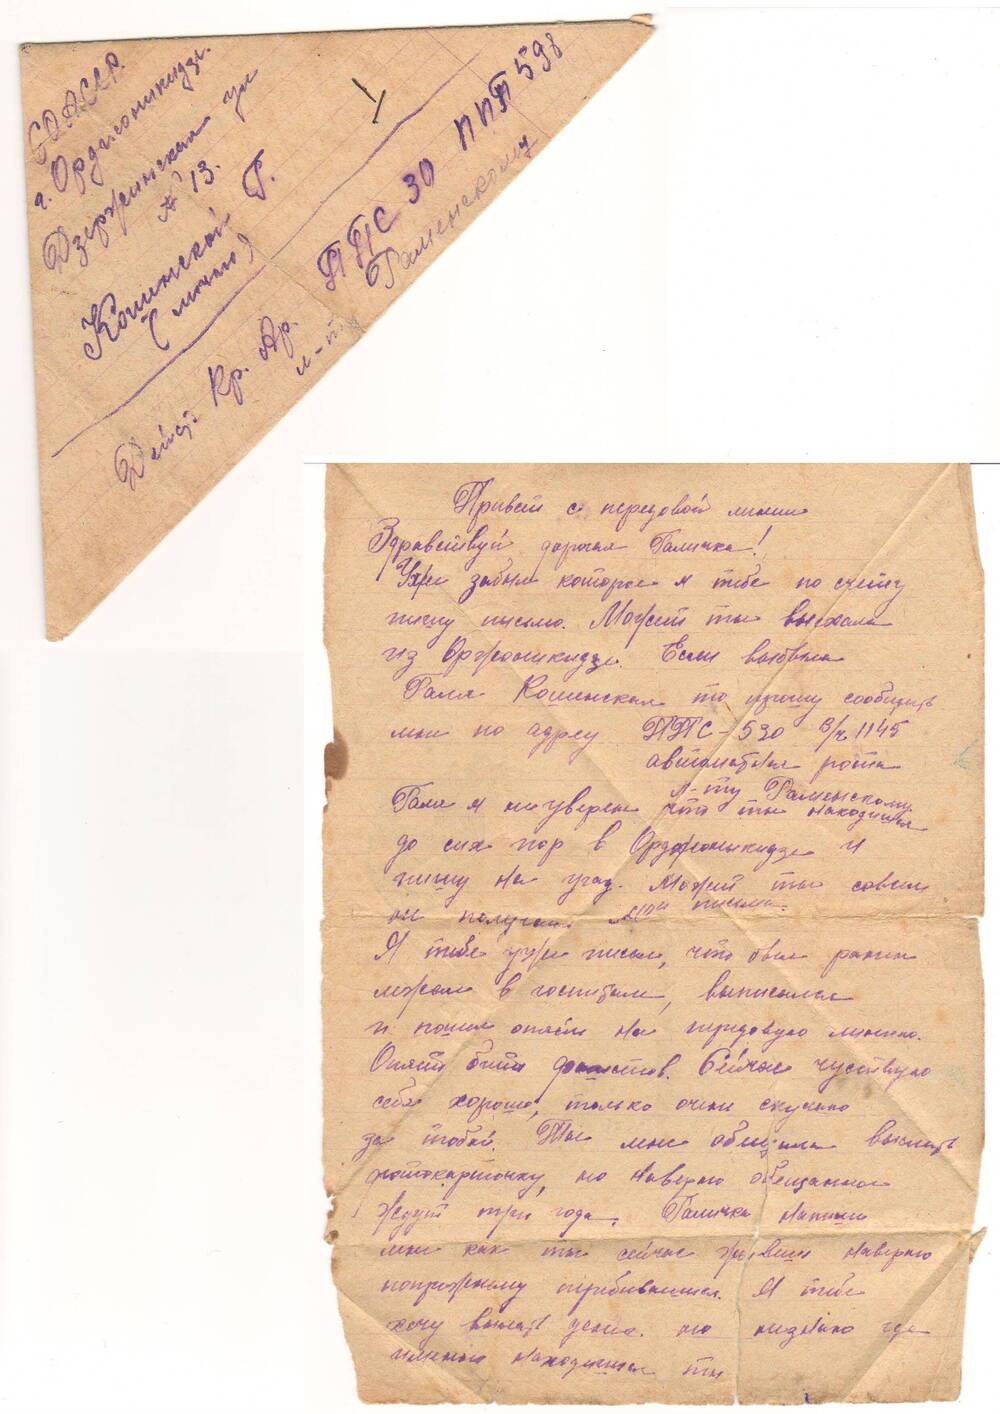 СОАССР.
г. Орджоникидзе.
Дзержинская ул
№ 13.
Кошинской Г.
(лично)
Действ. Кр. Ар.
ППС 30 ППП 598
л-т Раменскому
Привет с передовой линии
Здравствуй дорогая Галичка!
Уже забыл которое я тебе по счету
пишу письмо. Может ты выехала
из Орджоникидзе. Если выбыла
Галя Кошинская то прошу сообщить
мне по адресу ППС-530 в/ч 1145
автоматная рота
л-ту Раменскому
Галя я не уверен что ты находишся
до сих пор в Орджоникидзе и
пишу на угад. Может ты совсем
не получаеш мои письма.
Я тебе уже писал, что был ранен
лежал в госпитале, выписался
и пошел опять на передовую линию.
Опять бить фашистов. Сейчас чуствую
себя хорошо, только очень скучно
за тобой. Ты мне обещала выслать
фотокарточку, но наверно обещанное
ждут три года. Галичка напиши
мне как ты сейчас живеш наверно
попрежнему перебиваешся. Я тебе
хочу выслать денег. но незнаю где
именно находишся ты